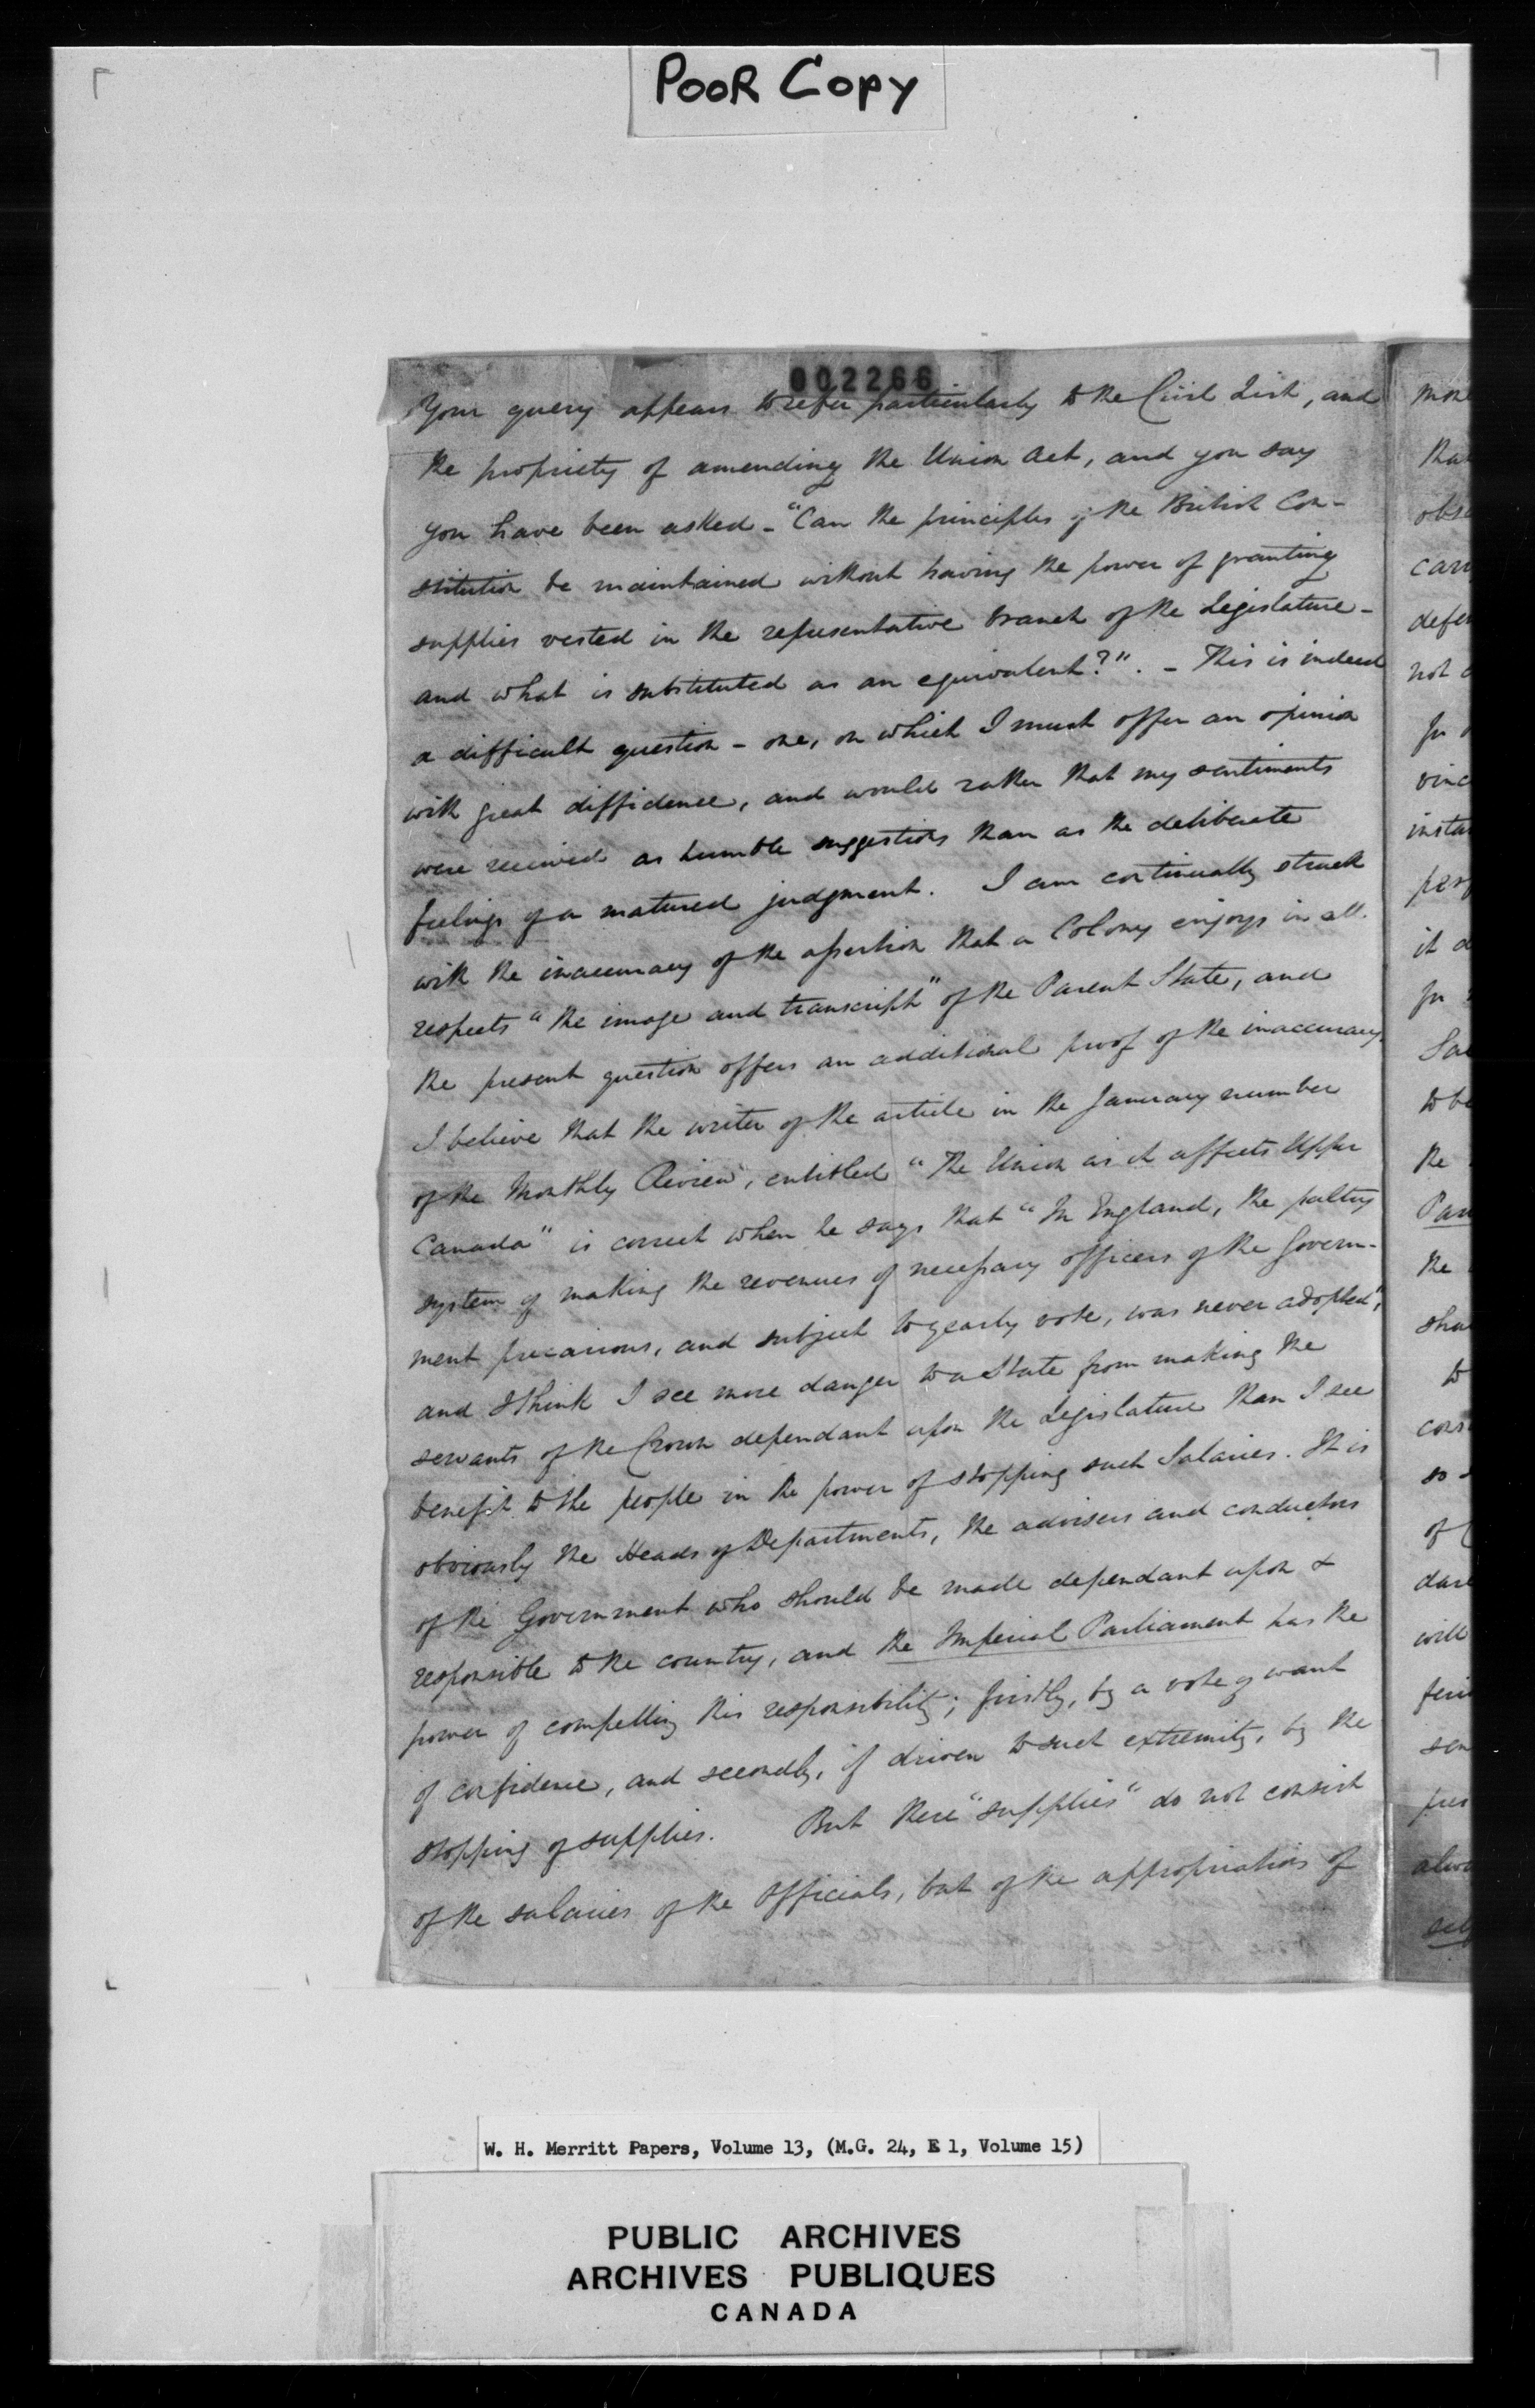 POOR COPY
002266
Your query appears to refer particularly to the Civil List, and
the propriety of amending the Union Act, and you say
you have been asked - "Can the principles of the British Con-
stitution be maintained without having the power of granting
supplies vested in the representative branch of the Legislature -
and what is substituted as an equivalent?". - This is indeed
a difficult question - one, on which I must offer an opinion
with great diffidence, and would rather that my sentiments
were received as humble suggestions than as the deliberate
feelings of a matured judgment. I am continually struck
with the inaccuracy of the assertion that a Colony enjoys in all
respects "the image and transcript" of the Parent State, and
the present question offers an additional proof of the inaccuracy.
I believe that the writer of the article in the January number
of the Monthly Review, entitled "The Union as it affects Upper
Canada" is correct when he says that "In England, the paltry
system of making the revenues of necessary officers of the Govern-
ment precarious, and subject to yearly vote, was never adopted",
and I think I see more danger to a State from making the
servants of the Crown dependant upon the Legislature than I see
benefit to the people in the power of stopping such Salaries. It is
obviously the Heads of Departments, the advisers and conductors
of the Government who should be made dependant upon &
responsible to the country, and the Imperial Parliament has the
power of compelling this responsibility; firstly, by a vote of want
of confidence, and secondly, if driven to such extremity, by the
stopping of supplies. But these "supplies" do not consist
of the salaries of the Officials, but of the appropriations of
W. H. Merritt Papers, Volume 13, (M.G. 24, E 1, Volume 15)
PUBLIC ARCHIVES
ARCHIVES PUBLIQUES
CANADA